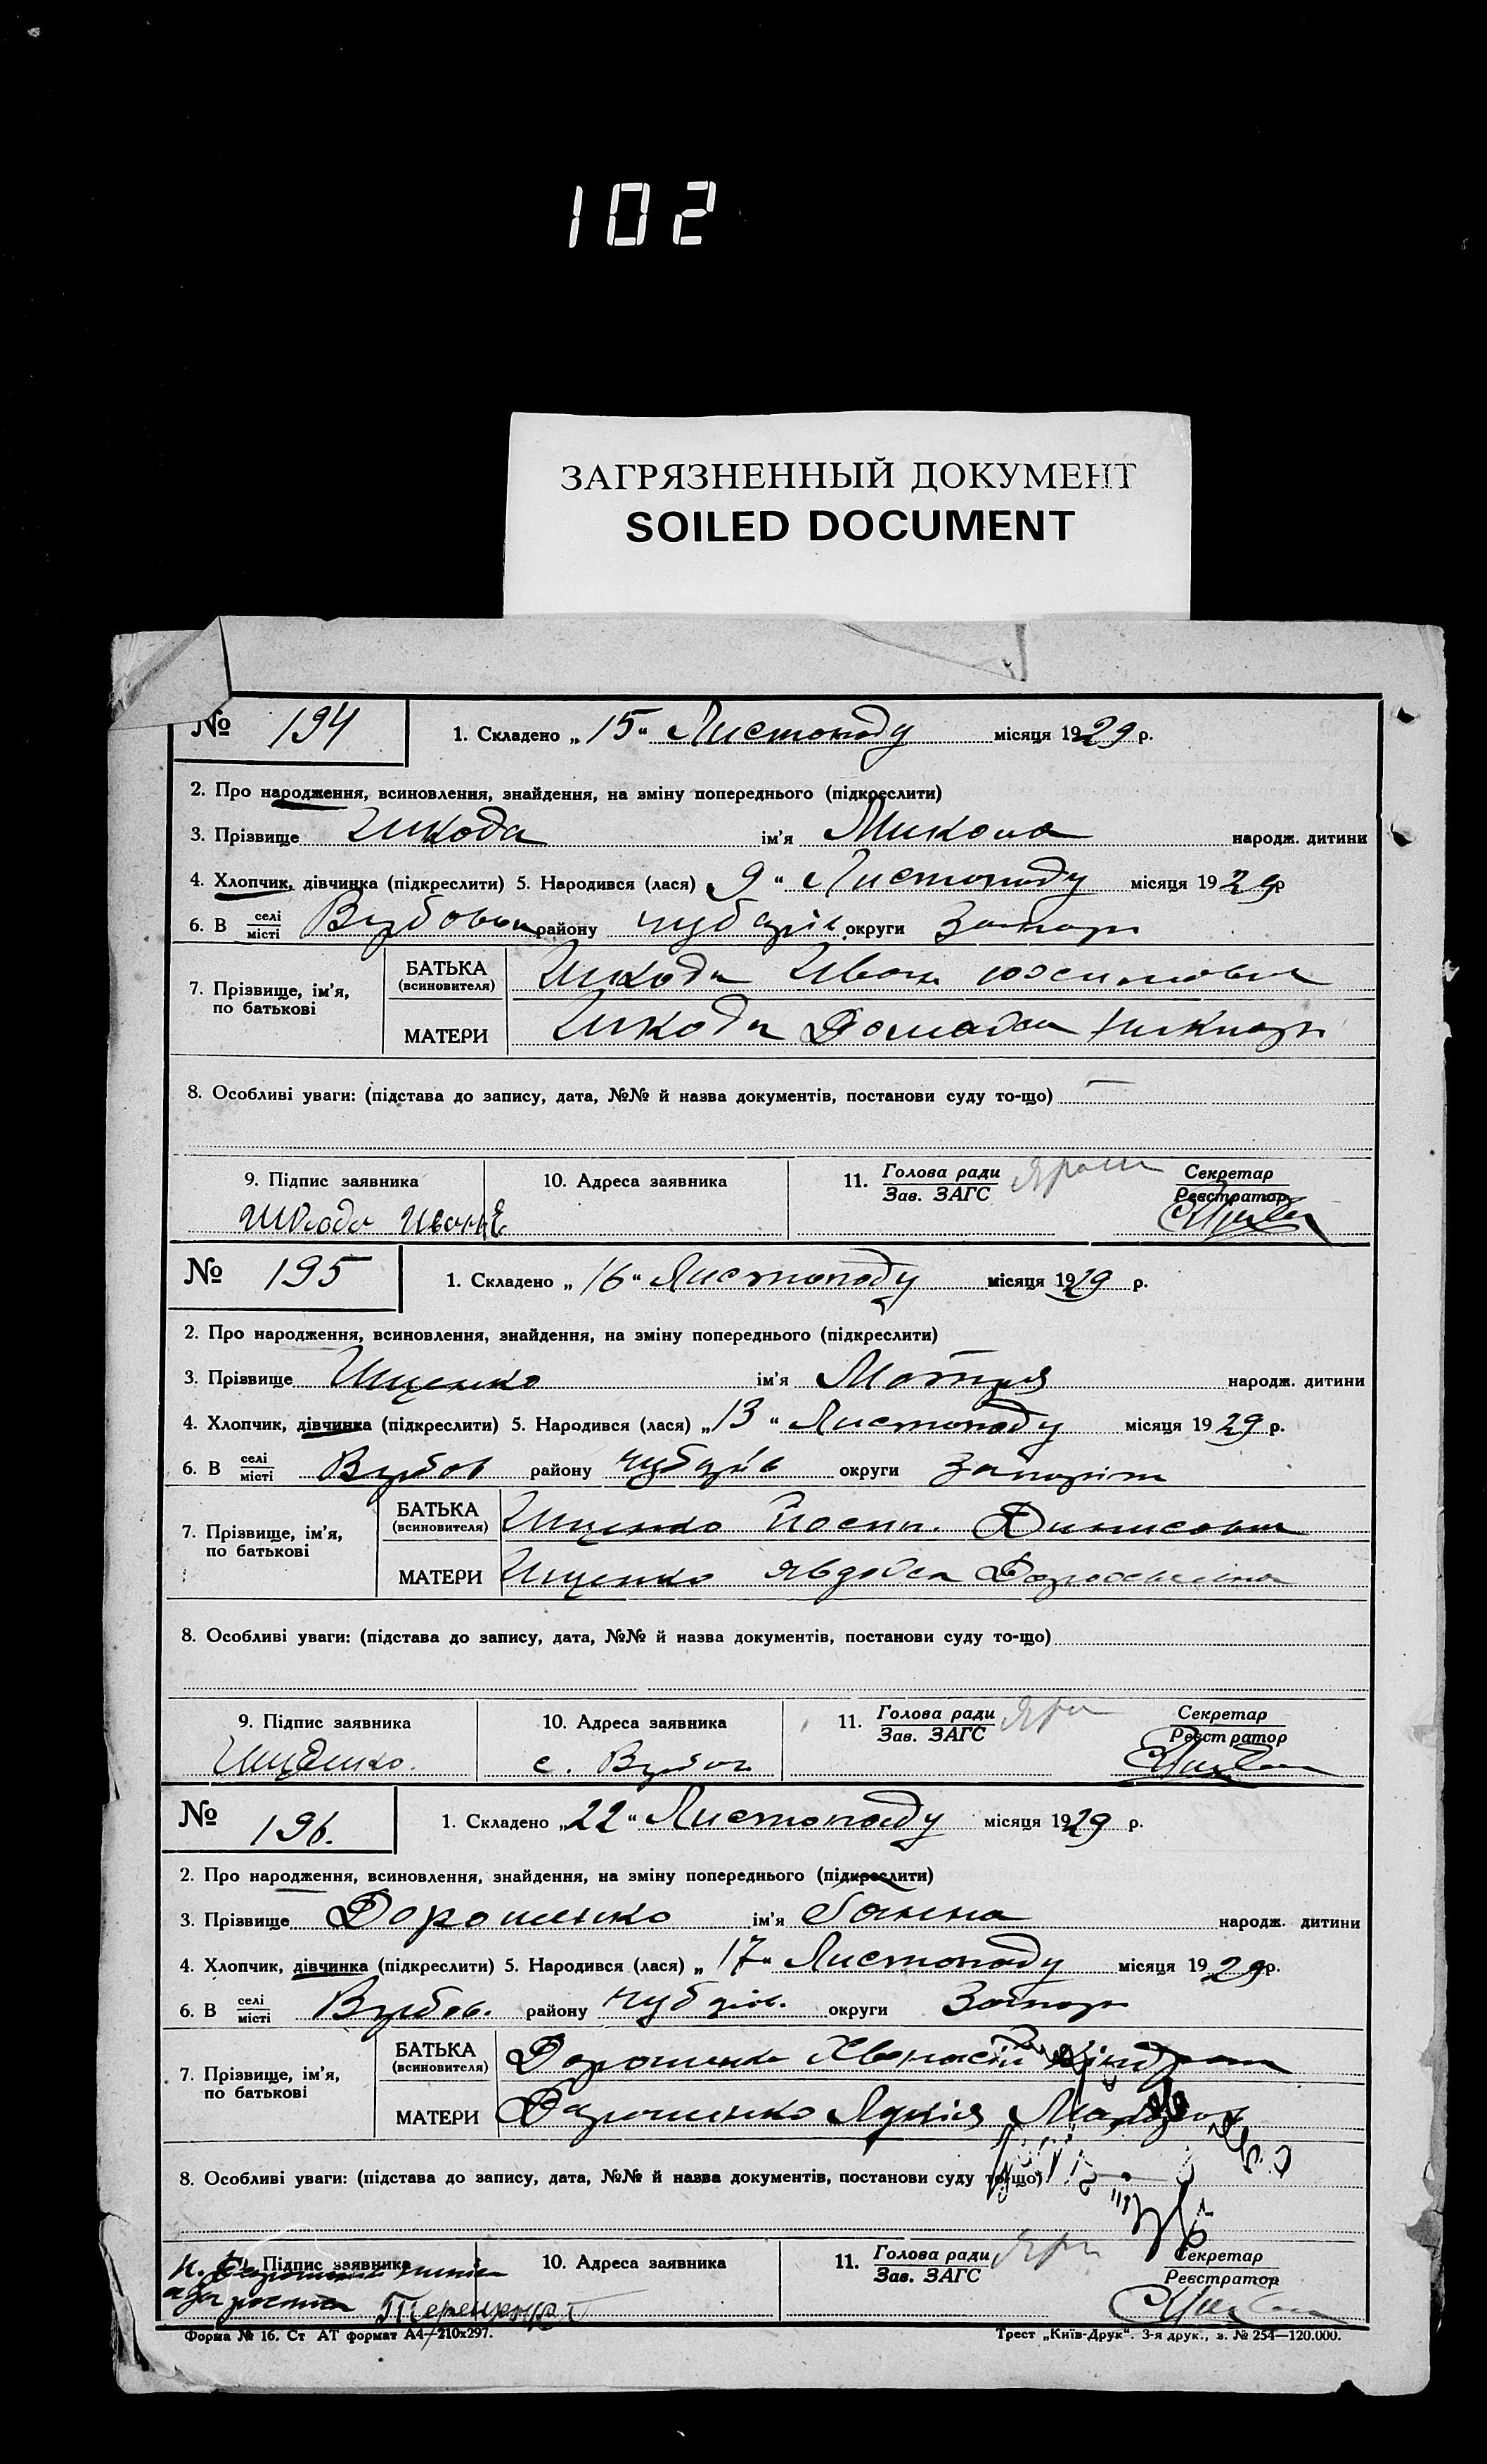 102
ЗАГРЯЗНЕННЫЙ ДОКУМЕНТ
SOILED DOCUMENT
№ 194 1. Складено „15“ Листопаду місяця 1929 р.
2. Про народження, всиновлення, знайдення, на зміну попереднього (підкреслити)
3. Прізвище Шкода ім'я Микола народж. дитини
4. Хлопчик, дівчинка (підкреслити) 5. Народився (лася) „9“ Листопаду місяця 1929 р
6. В селі місті району Чубарів округи Запор
7. Прізвище, ім'я, по батькові
БАТЬКА (всиновителя) Шкода Иван
МАТЕРИ Шкода
8. Особливі уваги: (підстава до запису, дата, №№ й назва документів, постанови суду то-що) —
9. Підпис заявника 10. Адреса заявника 11. Голова ради Зав. ЗАГС Секретар Реєстратор
Шкода Иван Е
№ 195 1. Складено „16“ Листопаду місяця 1929 р.
2. Про народження, всиновлення, знайдення, на зміну попереднього (підкреслити)
3. Прізвище Ищенко ім'я Мотря народж. дитини
4. Хлопчик, дівчинка (підкреслити) 5. Народився (лася) „13“ Листопаду місяця 1929 р.
6. В селі місті Вербов району Чубарів округи Запоріж
7. Прізвище, ім'я, по батькові
БАТЬКА (всиновителя) Ищенко Йосип. Динисович
МАТЕРИ Ищенко Явдоха
8. Особливі уваги: (підстава до запису, дата, №№ й назва документів, постанови суду то-що)
9. Підпис заявника 10. Адреса заявника 11. Голова ради Зав. ЗАГС Секретар Реєстратор
Ищенко. с. Вербов
№ 196. 1. Складено „22“ Листопаду місяця 1929 р.
2. Про народження, всиновлення, знайдення, на зміну попереднього (підкреслити)
3. Прізвище Дорошенко ім'я Ганна народж. дитини
4. Хлопчик, дівчинка (підкреслити) 5. Народився (лася) „17“ Листопаду місяця 1929 р.
6. В селі місті Вербов. району Чубарів. округи Запор
7. Прізвище, ім'я, по батькові
БАТЬКА (всиновителя) Дорошенко
МАТЕРИ Дорошенко
8. Особливі уваги: (підстава до запису, дата, №№ й назва документів, постанови суду то-що)
Підпис заявника 10. Адреса заявника 11. Голова ради Зав. ЗАГС Секретар Реєстратор
Форма № 16. Ст АТ формат А4—210x297. Трест „Київ-Друк“. 3-я друк., з. № 254—120.000.